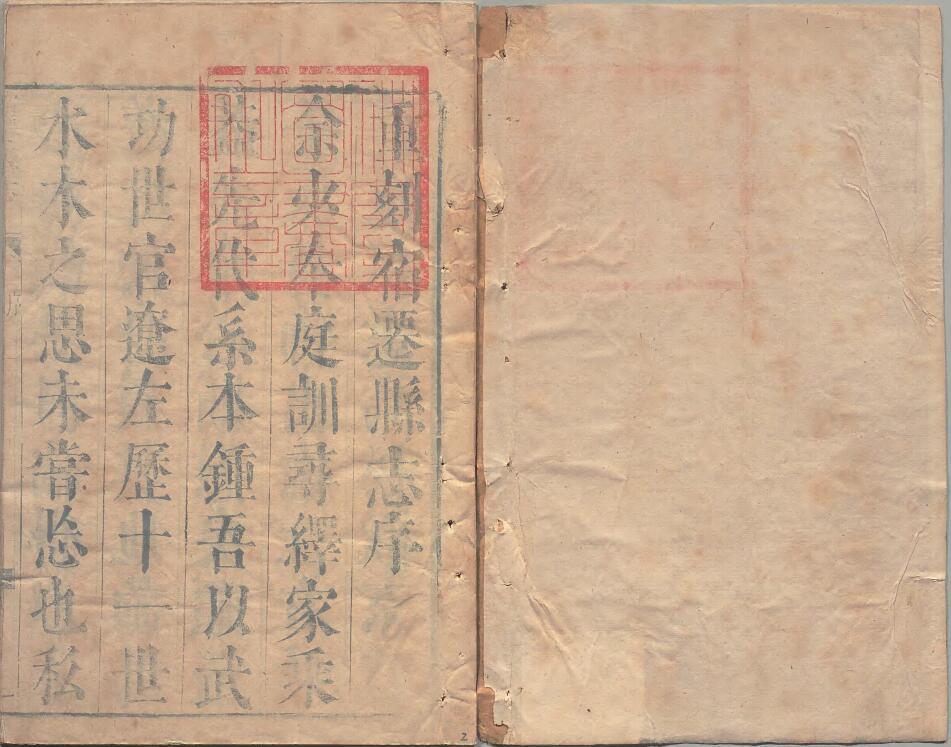 重刻宿遷縣志序
余夾奉庭訓尋繹家乘
葢先代系本鍾吾以武
功世官遼左歷十一世
水木之思未嘗忘也私
2